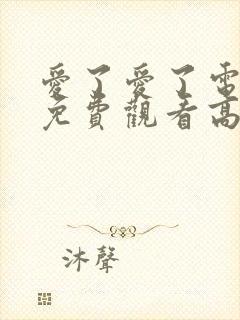 愛了愛了電
免費觀看高
沐聲